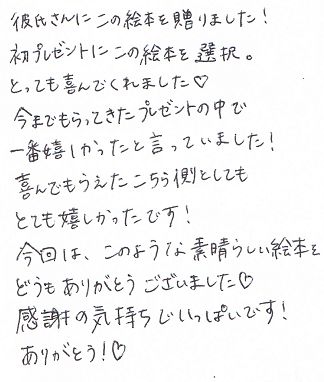 彼氏さんにこの絵本を贈りました!
初プレゼントにこの絵本を選択。
とっても喜んでくれました♡
今までもらってきたプレゼントの中で
一番嬉しかったと言っていました!
喜んでもらえたこちら側としても
とても嬉しかったです!
今回は、このような素晴らしい絵本を
どうもありがとうございました♡
感謝の気持ちでいっぱいです!
ありがとう!♡